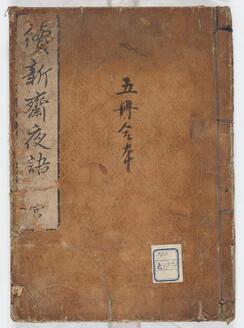 續新齋夜語 宮
五冊合本